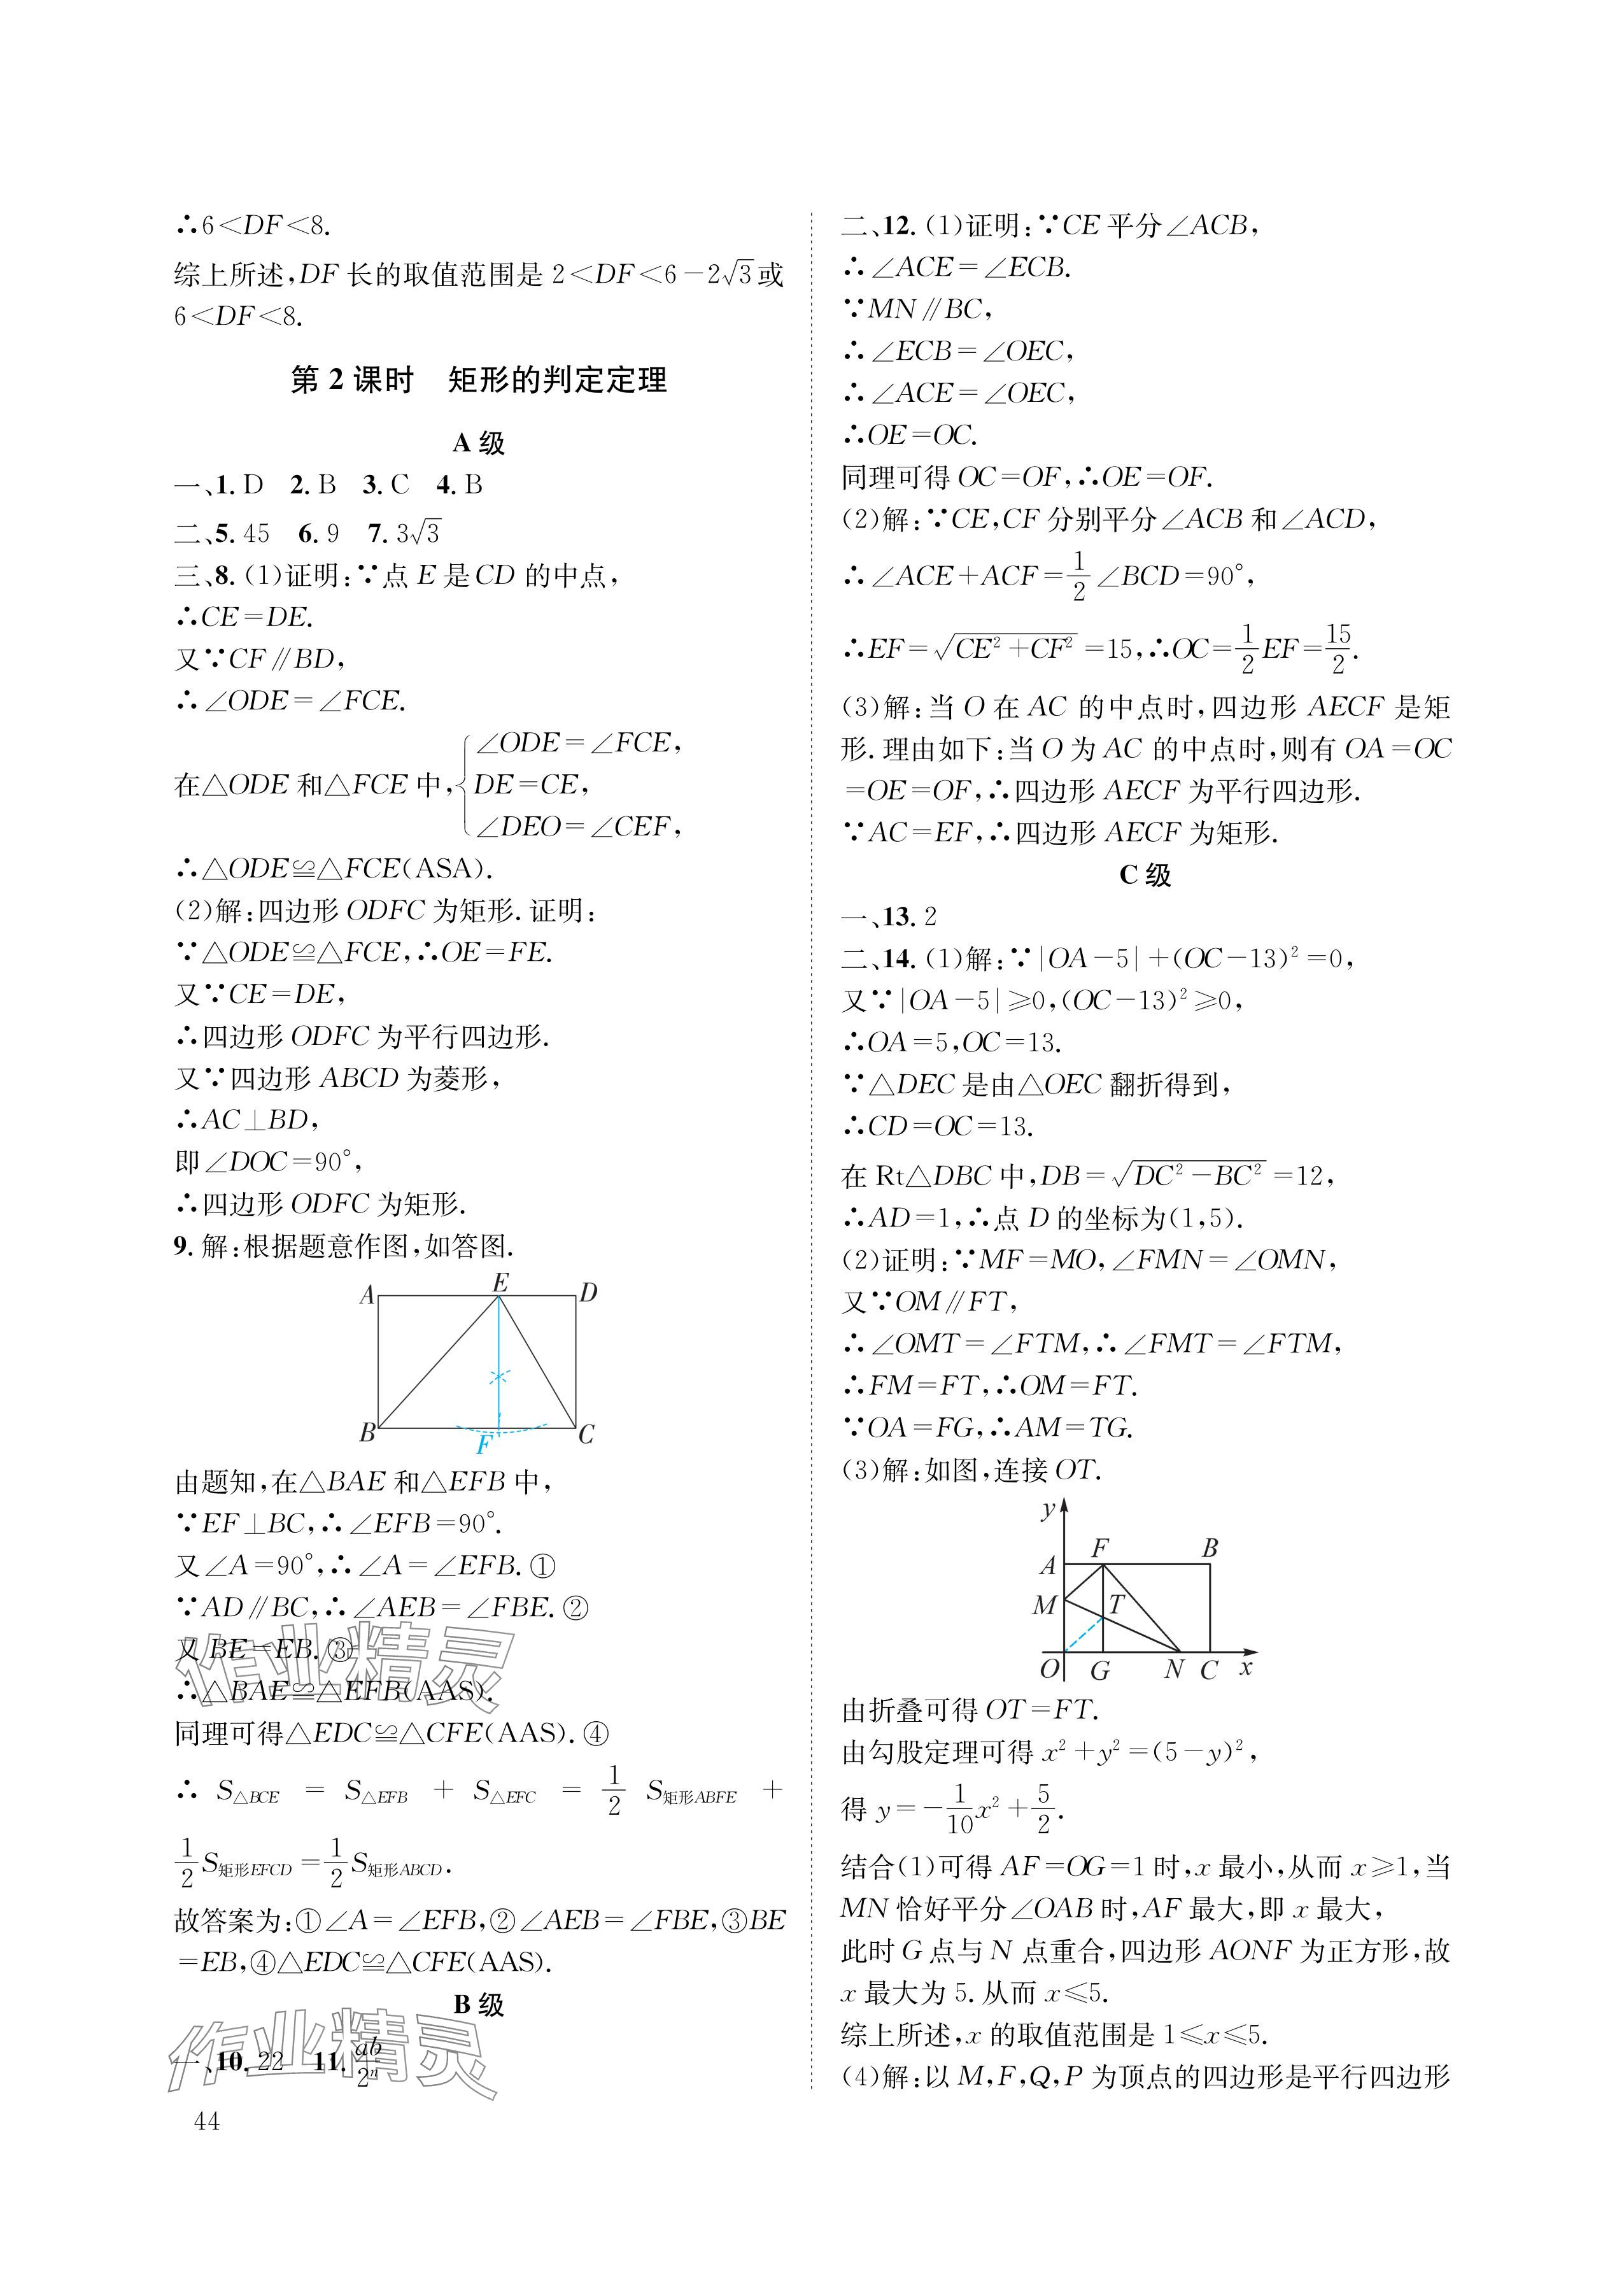 ∴6<DF<8.
综上所述,DF 长的取值范围是 2<DF<6-2√3或
6<DF<8.
第 2 课时 矩形的判定定理
A 级
一、1. D 2. B 3. C 4. B
二、5. 45 6. 9 7. 3√3
三、8. (1)证明:∵点 E 是 CD 的中点,
∴CE=DE.
又∵CF∥BD,
∴∠ODE=∠FCE.
在△ODE 和△FCE 中,{∠ODE=∠FCE,
DE=CE,
∠DEO=∠CEF,
∴△ODE≌△FCE(ASA).
(2)解:四边形 ODFC 为矩形. 证明:
∵△ODE≌△FCE,∴OE=FE.
又∵CE=DE,
∴四边形 ODFC 为平行四边形.
又∵四边形 ABCD 为菱形,
∴AC⊥BD,
即∠DOC=90°,
∴四边形 ODFC 为矩形.
9. 解:根据题意作图,如答图.
A E D
B F C
由题知,在△BAE 和△EFB 中,
∵EF⊥BC,∴∠EFB=90°.
又∠A=90°,∴∠A=∠EFB. ①
∵AD∥BC,∴∠AEB=∠FBE. ②
又 BE=EB. ③
∴△BAE≌△EFB(AAS).
同理可得△EDC≌△CFE(AAS). ④
∴ S△BCE = S△EFB + S△EFC = 1/2 S矩形ABFE +
1/2 S矩形EFCD = 1/2 S矩形ABCD.
故答案为:①∠A=∠EFB,②∠AEB=∠FBE,③BE
=EB,④△EDC≌△CFE(AAS).
B 级
一、10. 22 11. ab/2ⁿ
44
二、12. (1)证明:∵CE 平分∠ACB,
∴∠ACE=∠ECB.
∵MN∥BC,
∴∠ECB=∠OEC,
∴∠ACE=∠OEC,
∴OE=OC.
同理可得 OC=OF,∴OE=OF.
(2)解:∵CE,CF 分别平分∠ACB 和∠ACD,
∴∠ACE+ACF=1/2∠BCD=90°,
∴EF=√(CE²+CF²)=15,∴OC=1/2 EF=15/2.
(3)解:当 O 在 AC 的中点时,四边形 AECF 是矩
形. 理由如下:当 O 为 AC 的中点时,则有 OA=OC
=OE=OF,∴四边形 AECF 为平行四边形.
∵AC=EF,∴四边形 AECF 为矩形.
C 级
一、13. 2
二、14. (1)解:∵|OA-5|+(OC-13)²=0,
又∵|OA-5|≥0,(OC-13)²≥0,
∴OA=5,OC=13.
∵△DEC 是由△OEC 翻折得到,
∴CD=OC=13.
在 Rt△DBC 中,DB=√(DC²-BC²)=12,
∴AD=1,∴点 D 的坐标为(1,5).
(2)证明:∵MF=MO,∠FMN=∠OMN,
又∵OM∥FT,
∴∠OMT=∠FTM,∴∠FMT=∠FTM,
∴FM=FT,∴OM=FT.
∵OA=FG,∴AM=TG.
(3)解:如图,连接 OT.
y
A F B
M T
O G N C x
由折叠可得 OT=FT.
由勾股定理可得 x²+y²=(5-y)²,
得 y=-1/10 x²+5/2.
结合(1)可得 AF=OG=1 时,x 最小,从而 x≥1,当
MN 恰好平分∠OAB 时,AF 最大,即 x 最大,
此时 G 点与 N 点重合,四边形 AONF 为正方形,故
x 最大为 5. 从而 x≤5.
综上所述,x 的取值范围是 1≤x≤5.
(4)解:以 M,F,Q,P 为顶点的四边形是平行四边形
作业精灵
作业精灵